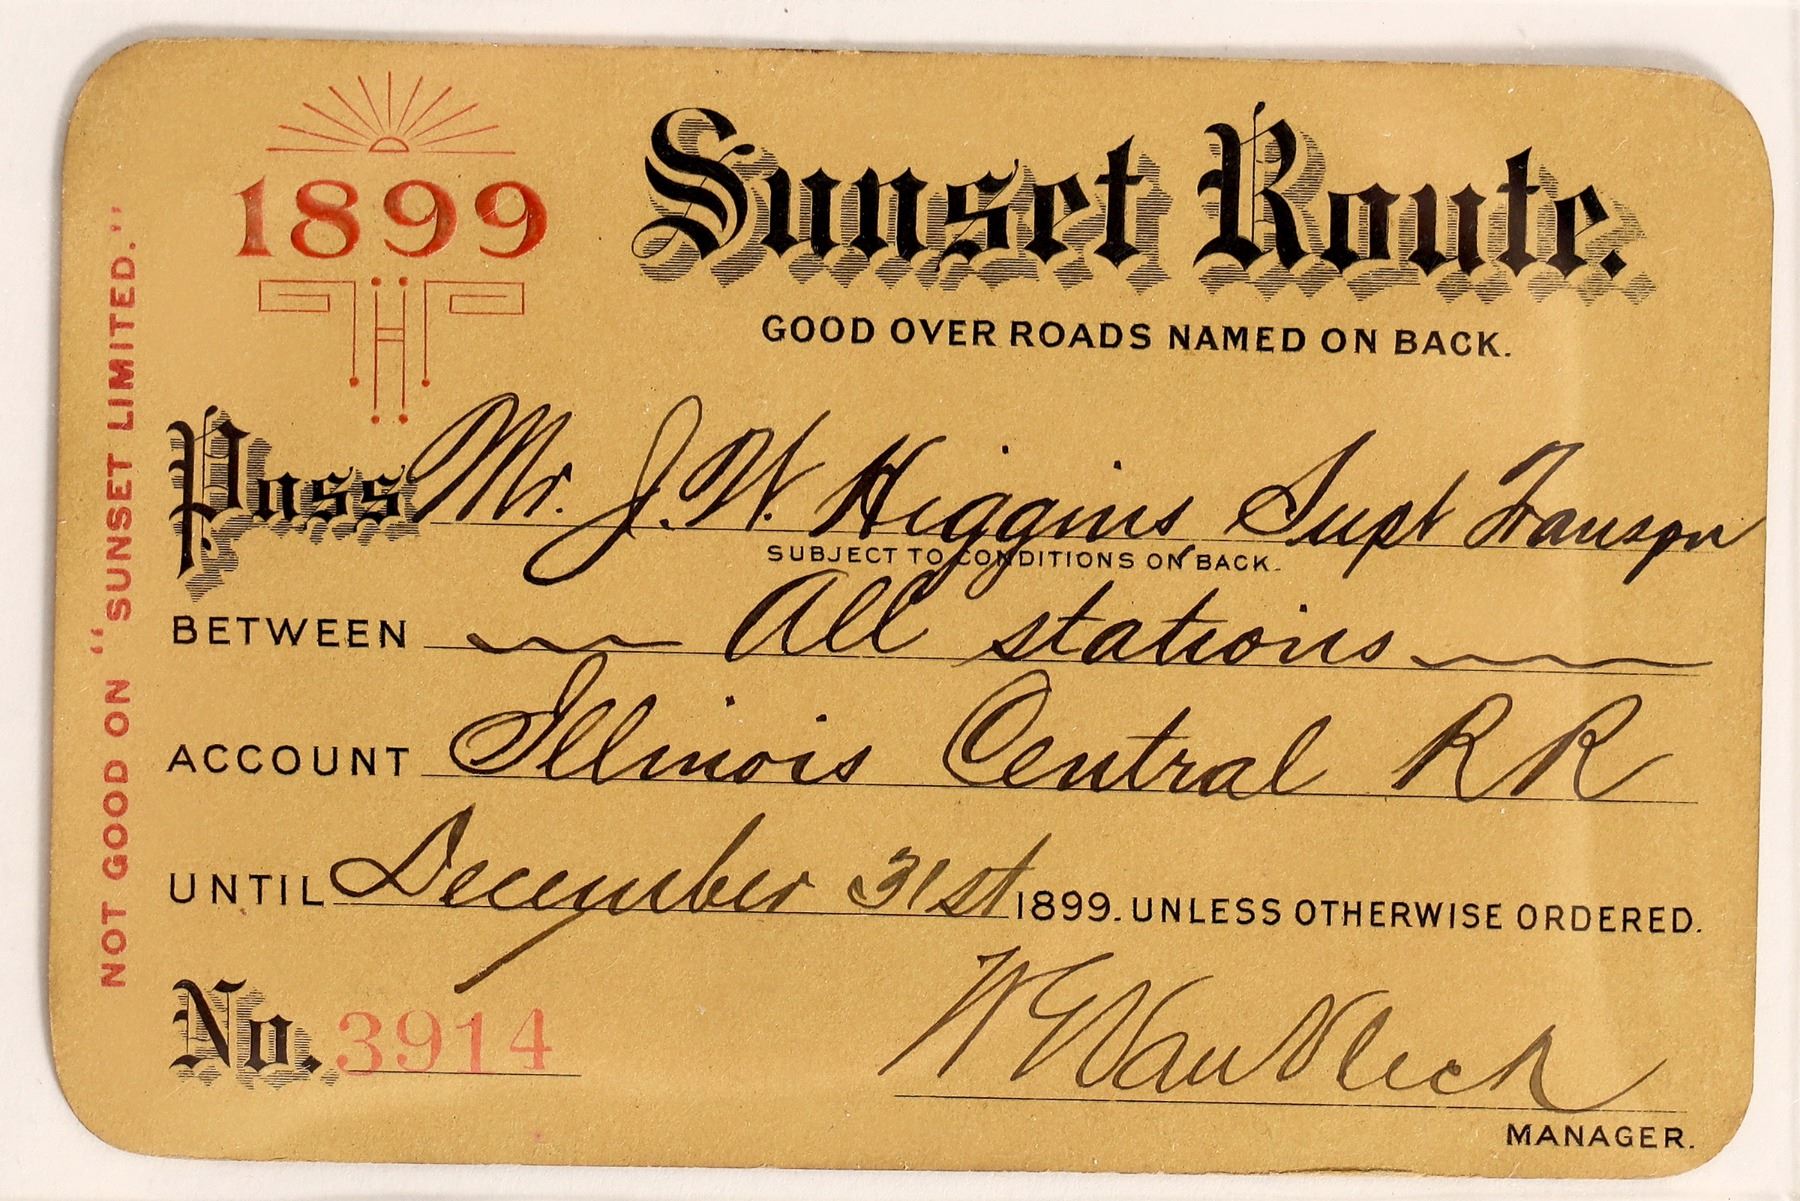 1899
Sunset Route.
GOOD OVER ROADS NAMED ON BACK.
Pass Mr. J. W. Higgins Supt Transpn
SUBJECT TO CONDITIONS ON BACK.
BETWEEN All stations
ACCOUNT Illinois Central R R
UNTIL December 31st 1899. UNLESS OTHERWISE ORDERED.
No. 3914
W G Van Vleck
MANAGER.
NOT GOOD ON "SUNSET LIMITED."